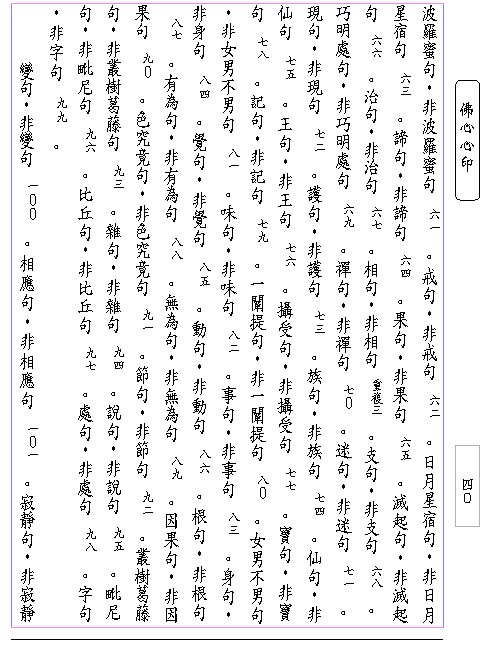 佛心心印
四〇
波羅蜜句・非波羅蜜句 六一 。戒句・非戒句 六二 。日月星宿句・非日月
星宿句 六三 。諦句・非諦句 六四 。果句・非果句 六五 。滅起句・非滅起
句 六六 。治句・非治句 六七 。相句・非相句 重複三 。支句・非支句 六八 。
巧明處句・非巧明處句 六九 。禪句・非禪句 七〇 。迷句・非迷句 七一 。
現句・非現句 七二 。護句・非護句 七三 。族句・非族句 七四 。仙句・非
仙句 七五 。王句・非王句 七六 。攝受句・非攝受句 七七 。寶句・非寶
句 七八 。記句・非記句 七九 。一闡提句・非一闡提句 八〇 。女男不男句
・非女男不男句 八一 。味句・非味句 八二 。事句・非事句 八三 。身句・
非身句 八四 。覺句・非覺句 八五 。動句・非動句 八六 。根句・非根句
八七 。有為句・非有為句 八八 。無為句・非無為句 八九 。因果句・非因
果句 九〇 。色究竟句・非色究竟句 九一 。節句・非節句 九二 。叢樹葛藤
句・非叢樹葛藤句 九三 。雜句・非雜句 九四 。說句・非說句 九五 。毗尼
句・非毗尼句 九六 。比丘句・非比丘句 九七 。處句・非處句 九八 。字句
・非字句 九九 。
變句・非變句 一〇〇 。相應句・非相應句 一〇一 。寂靜句・非寂靜